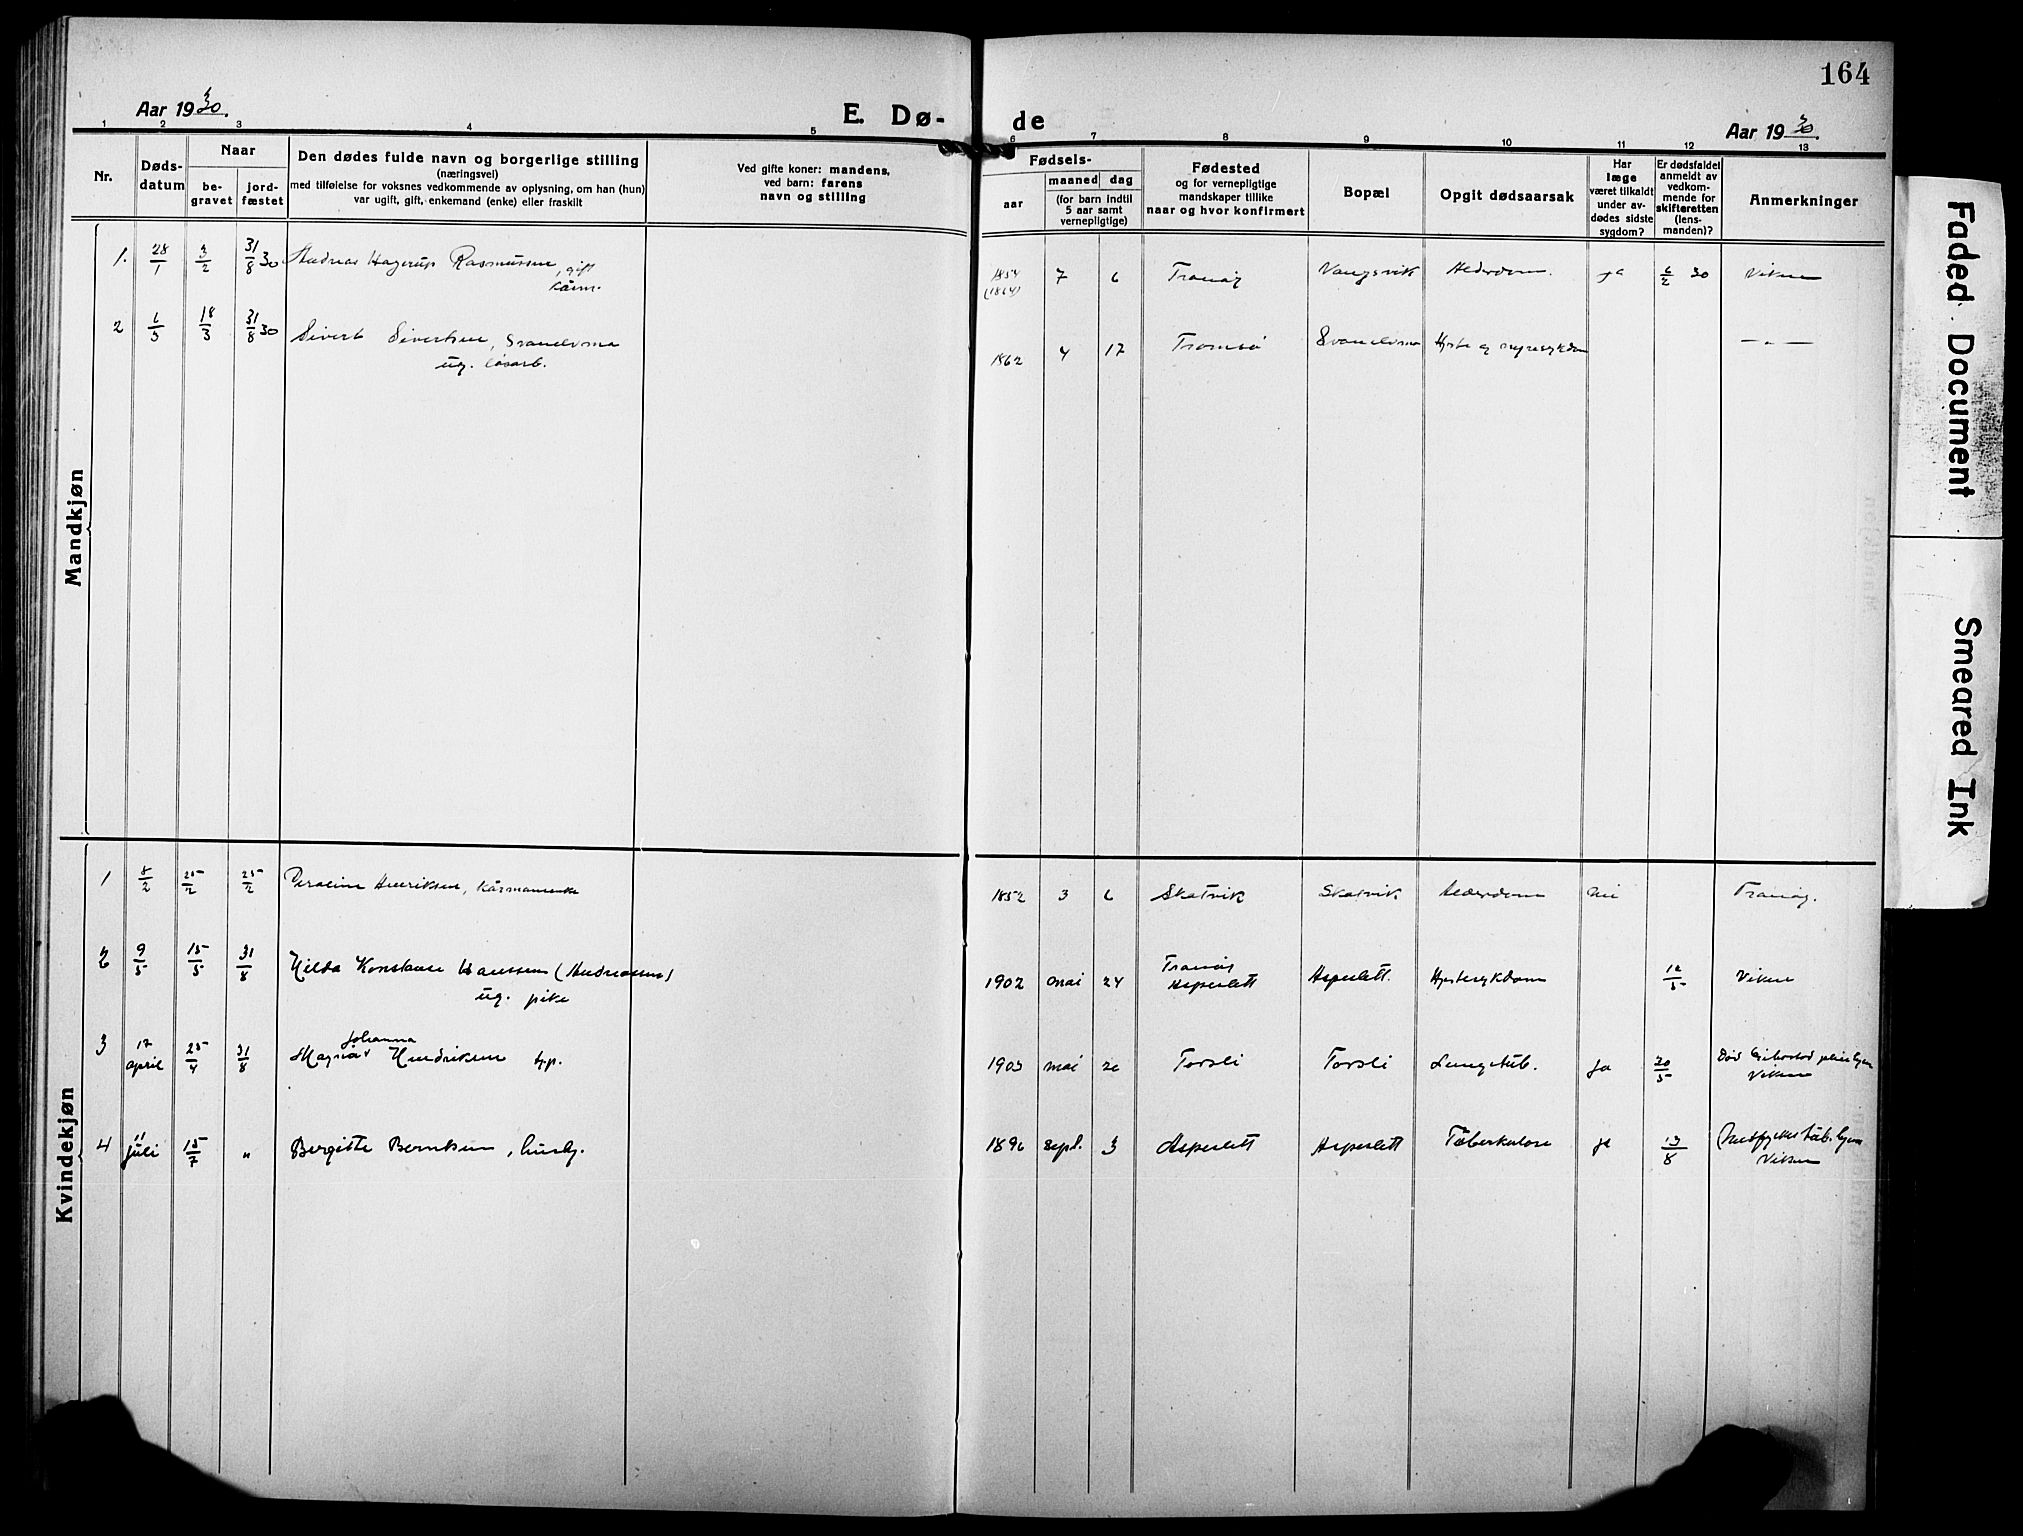 164
Aar 1930.
E. Dø-
de
Aar 1930.
1 2 3 4 5 6 7 8 9 10 11 12 13
Nr.
Døds-
datum
Naar
be-
gravet
jord-
fæstet
Den dødes fulde navn og borgerlige stilling
(næringsvei)
med tilføielse for voksnes vedkommende av oplysning, om han (hun)
var ugift, gift, enkemand (enke) eller fraskilt
Ved gifte koner: mandens,
ved barn: farens
navn og stilling
Fødsels-
aar
maaned dag
(for barn indtil
5 aar samt
vernepligtige)
Fødested
og for vernepligtige
mandskaper tillike
naar og hvor konfirmert
Bopæl
Opgit dødsaarsak
Har
læge
været tilkaldt
under av-
dødes sidste
sygdom?
Er dødsfaldet
anmeldt av
vedkom-
mende for
skifteretten
(lens-
manden)?
Anmerkninger
Mandkjøn
1. 28/1 3/2 31/8 30 Andreas Hagerup Rasmussen, gift 1854 7 6 Tranøy Vangsvik Alderdom. ja 6/2 30 Viken
kårm. (1864)
2 6/3 18/3 31/8 30 Sivert Sivertsen, Svanelvmo 1862 4 17 Tromsø Svanelvmo Hjerte og nyresykdom — " —
ug. løsarb.
Kvindekjøn
1 8/2 25/2 25/2 Peroline Henriksen, kårmannenke 1852 3 6 Skatvik Skatvik Alderdom nei Tranøy.
2 9/5 15/5 31/8 Hilda Konstanse Hanssen (Andreassen) 1902 mai 24 Tranøy Aspeslett Aspeslett. Hjertesykdom 12/5 Viken
ug. pike
3 17 april 25/4 31/8 Magna Johanna Hendriksen 1903 mai 20 Torsli Torsli Lungetub. Ja 20/5 Død Gibostad pleiehjem
Viken
4 11 juli 15/7 " Bergitte Berntsen, husm. 1896 sept. 3 Aspeslett Aspeslett Tuberkulose ja 13/8 tub.hjem
Viken
Faded Document
Smeared Ink